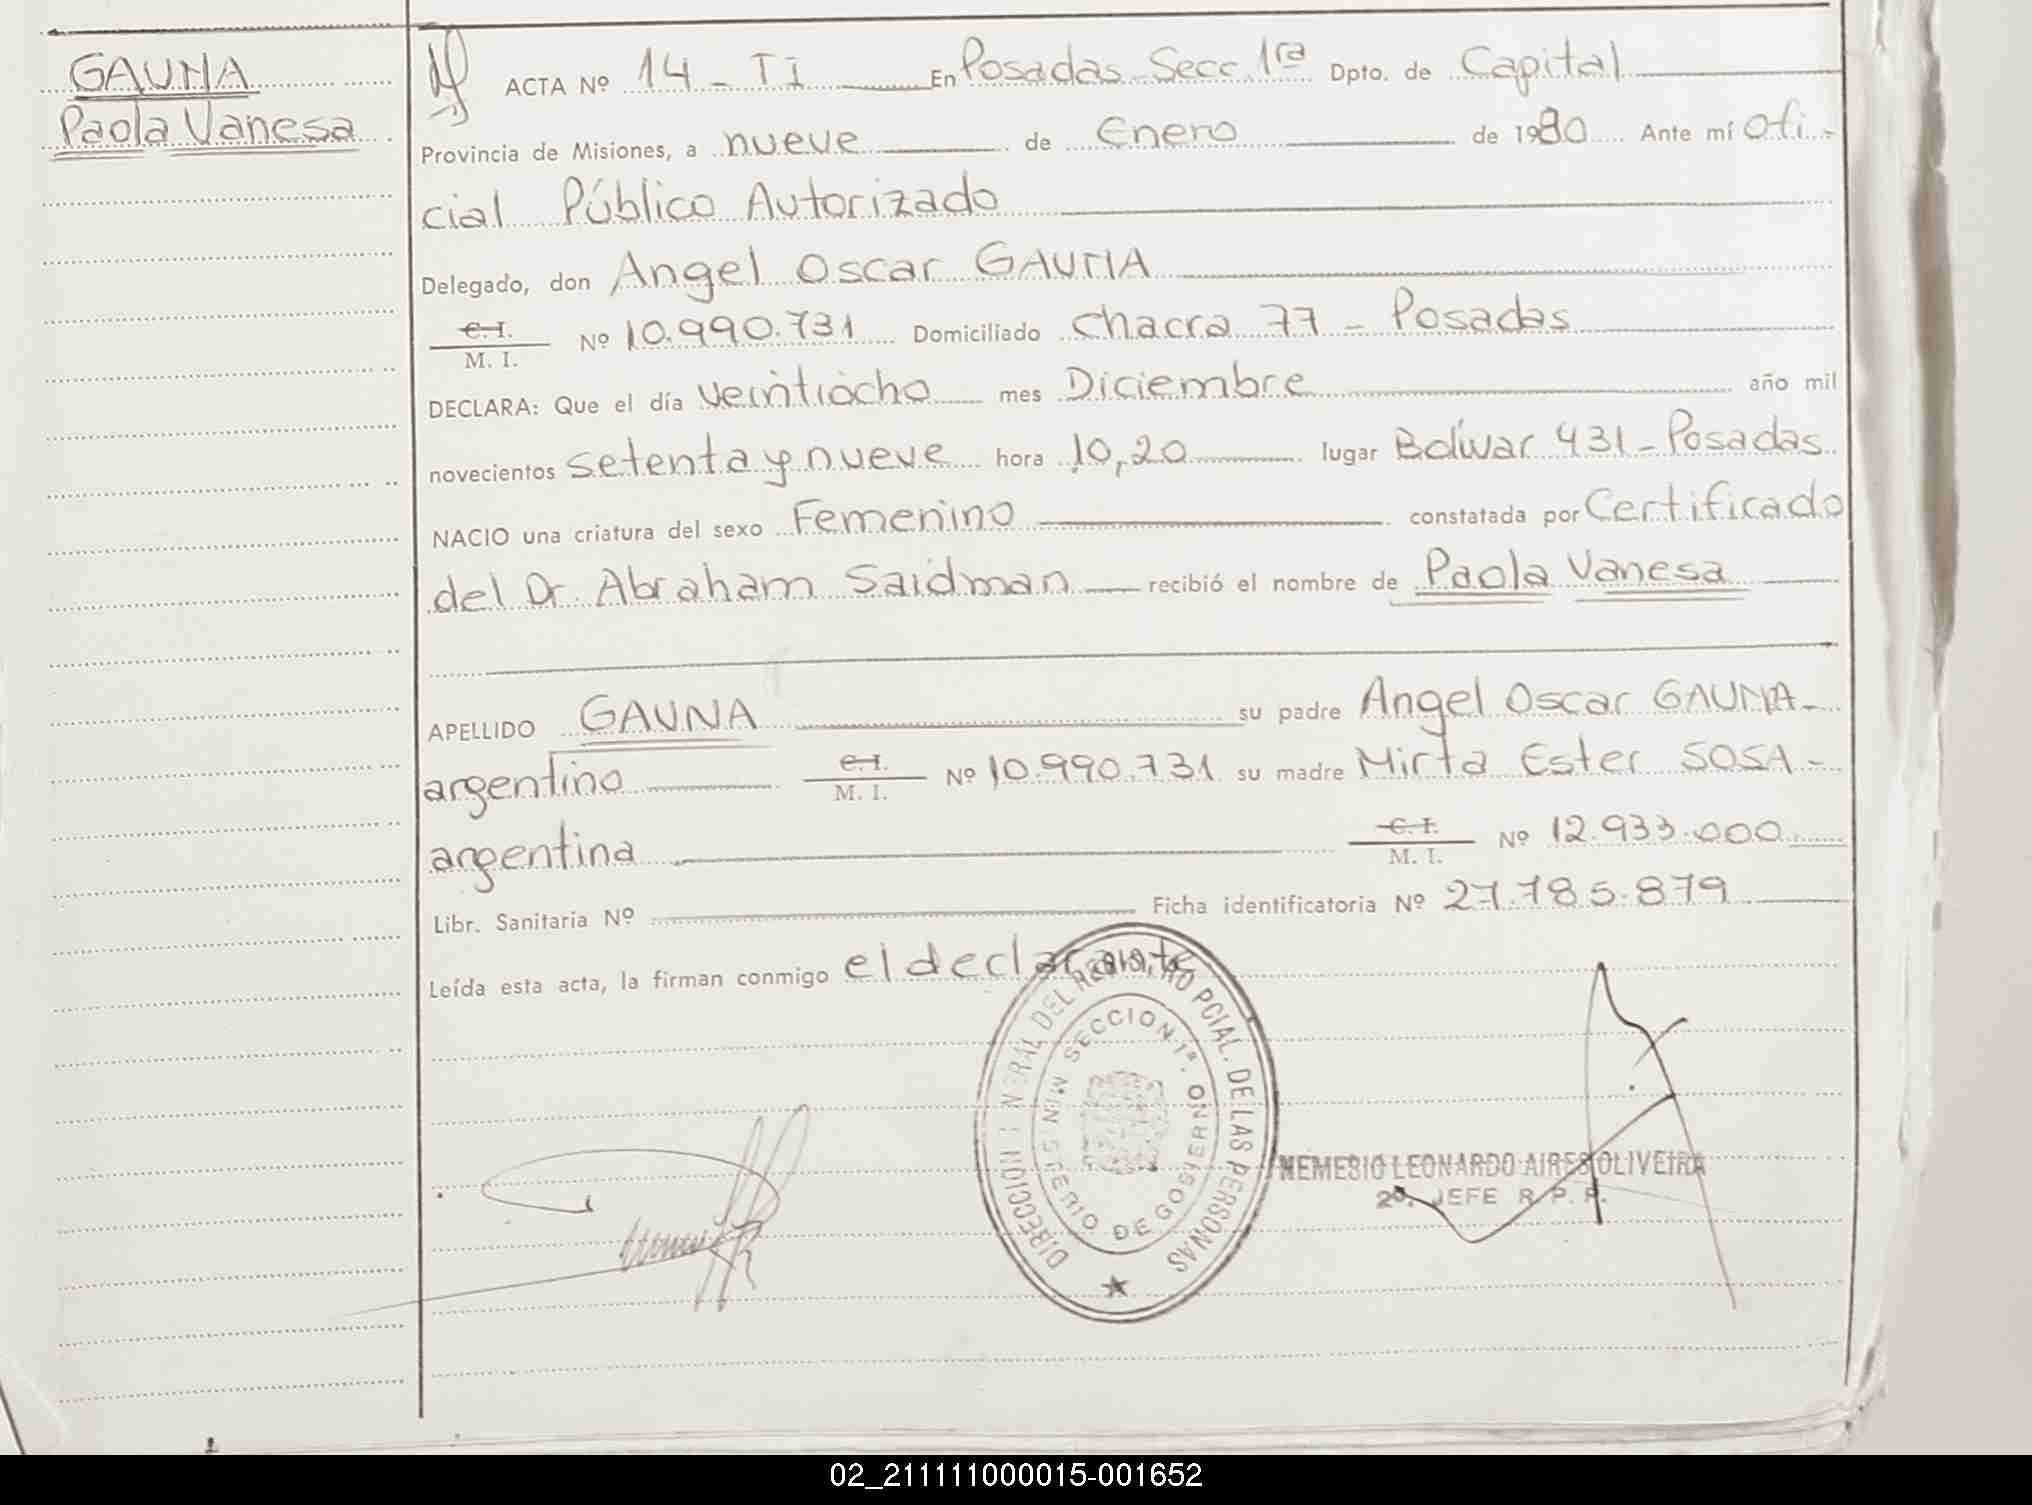 GAUNA
Paola Vanesa
ACTA Nº 14 - TI En Posadas Secc 1ra Dpto. de Capital
Provincia de Misiones, a nueve de Enero de 1980 Ante mí Ofi-
cial Público Autorizado
Delegado, don Angel Oscar GAUNA
C.I.
M. I. Nº 10.990.731 Domiciliado Chacra 77 - Posadas
DECLARA: Que el día veintiocho mes Diciembre año mil
novecientos setenta y nueve hora 10,20 lugar Bolívar 431 - Posadas
NACIO una criatura del sexo Femenino constatada por Certificado
del Dr. Abraham Saidman recibió el nombre de Paola Vanesa
APELLIDO GAUNA su padre Angel Oscar GAUNA -
argentino C.I. M. I. Nº 10.990.731 su madre Mirta Ester SOSA -
argentina C.I. M. I. Nº 12.933.000
Libr. Sanitaria Nº Ficha identificatoria Nº 27.785.879
Leída esta acta, la firman conmigo el declarante
DIRECCION GENERAL DEL REGISTRO PCIAL. DE LAS PERSONAS
SECCION 1ª.
MINISTERIO DE GOBIERNO
NEMESIO LEONARDO AIRES OLIVEIRA
2º. JEFE R. P. P.
02_211111000015-001652